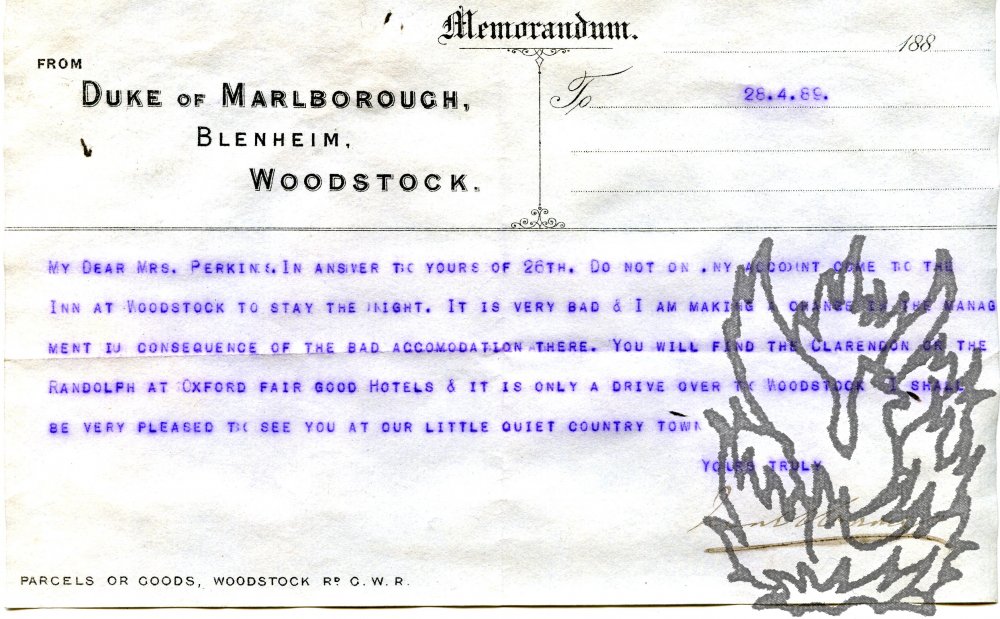 Memorandum.
188
FROM
DUKE OF MARLBOROUGH,
BLENHEIM,
WOODSTOCK.
To 28.4.89.
MY DEAR MRS. PERKINS. IN ANSWER TO YOURS OF 26TH. DO NOT ON ANY ACCOUNT COME TO THE
INN AT WOODSTOCK TO STAY THE NIGHT. IT IS VERY BAD & I AM MAKING A CHANGE IN THE MANAG
MENT IN CONSEQUENCE OF THE BAD ACCOMODATION THERE. YOU WILL FIND THE CLARENDON OR THE
RANDOLPH AT OXFORD FAIR GOOD HOTELS & IT IS ONLY A DRIVE OVER TO WOODSTOCK I SHALL
BE VERY PLEASED TO SEE YOU AT OUR LITTLE QUIET COUNTRY TOWN
YOURS TRULY
PARCELS OR GOODS, WOODSTOCK RD G.W.R.